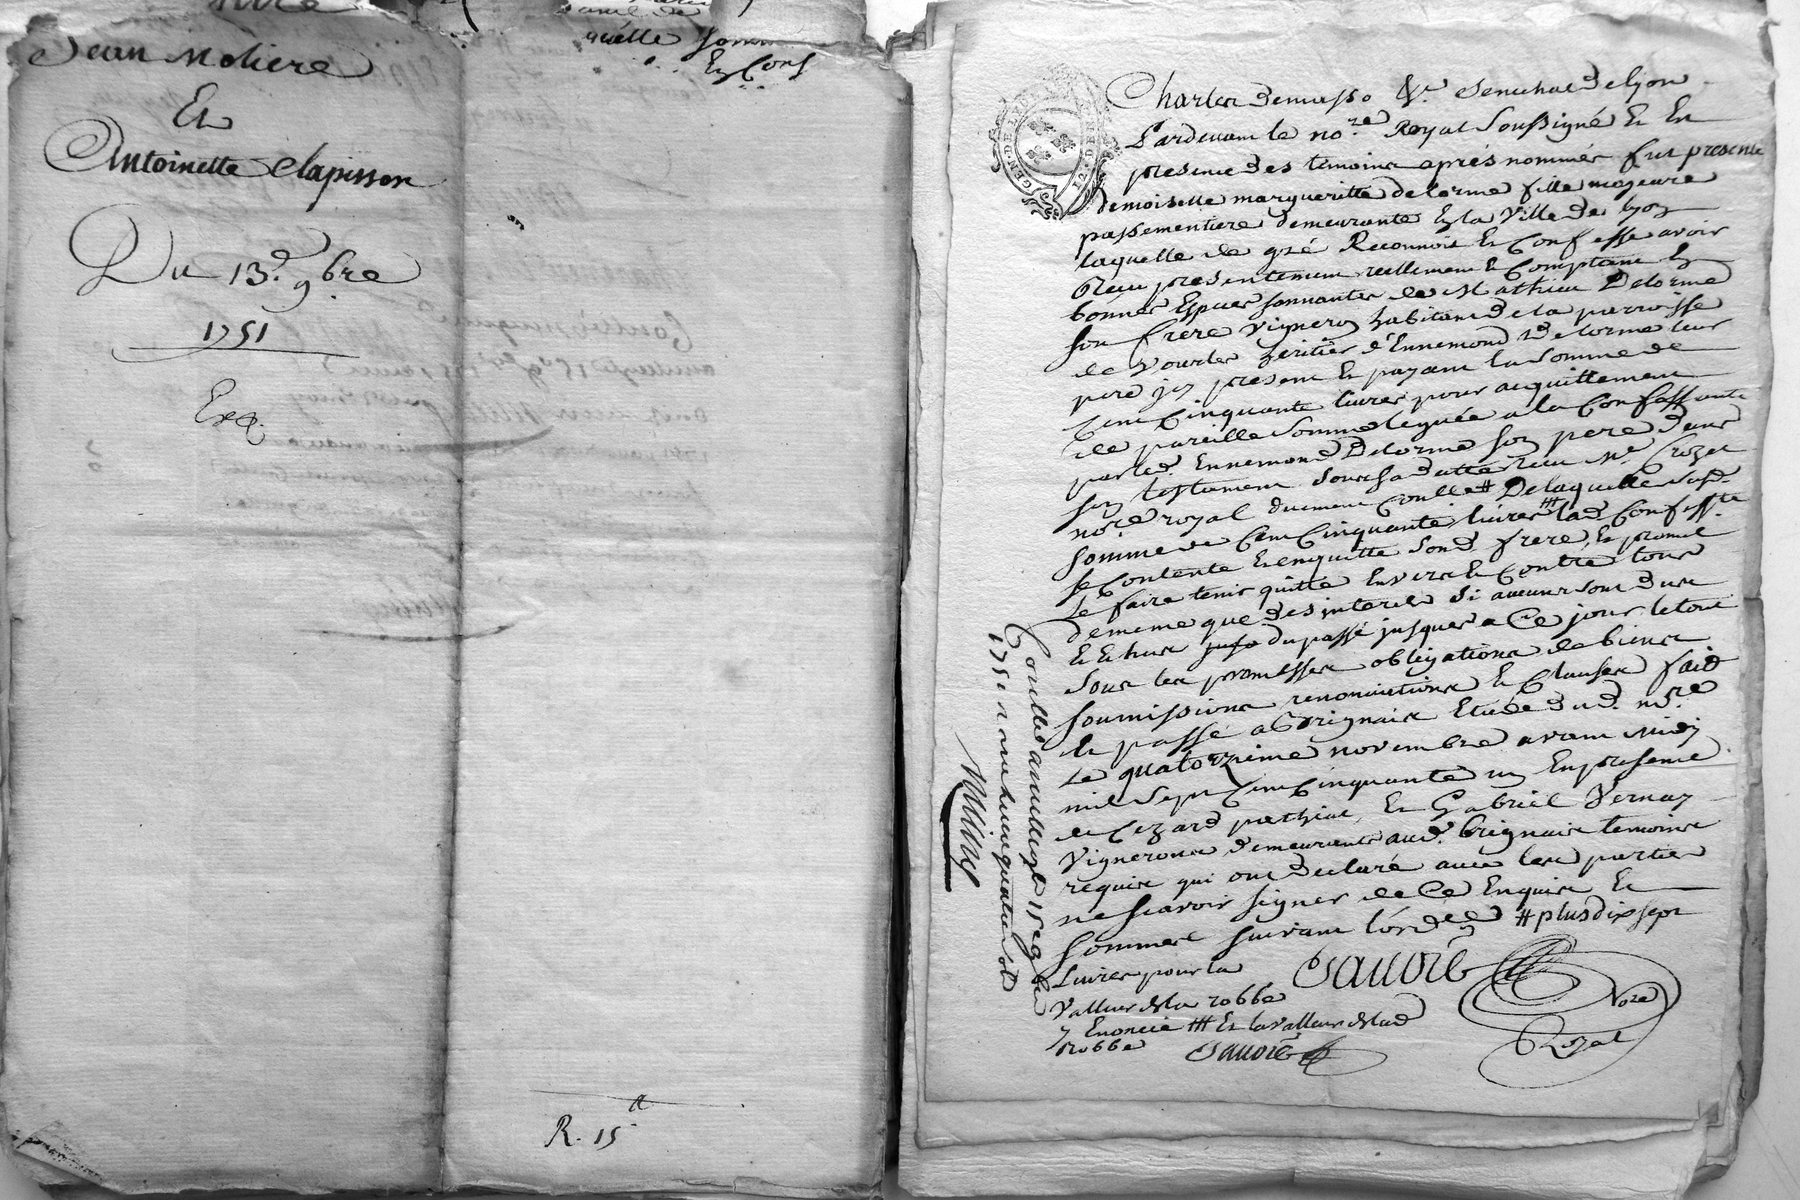 Jean Moliere
Et
Antoinette Clapisson
Du 13.e 9bre
1751
Exp.
quelle somme
En Conf
R. 15
GEN. DE LYON
Charles Demasso Ch.er Senechal de Lyon
Pardevant le no.re Royal Soussigné Et En
presence des temoins aprés nommés fut presente
demoiselle margueritte delorme fille majeure
passementiere demeurante En la Ville de lyon
laquelle de gré Reconnoit Et Confesse avoir
Receu presentement reellement Et Comptant En
bonnes Especes sonnantes de Mathieu Delorme
son frere Vigneron habitant de la parroisse
de Vourles heritier d'Ennemond Delorme leur
pere icy present Et payant la somme de
Cent Cinquante livres pour acquittement
de pareille somme leguée a la Confessante
par led. Ennemond Delorme son pere dans
son testament sous sa datte receu Me. Crozet
no.re royal duement Conllé # De laquelle susd.
somme de Cent Cinquante livres ## lad. Confess.te
se Contente Et enquitte sond. frere, Et promet
le faire tenir quitte Envers Et Contre tous
de meme que des interets si aucuns sont dus
Et Echus du passé jusques a Ce jour le tout
sous les promesses obligations de biens
soumissions renonciations Et Clauses fait
Et passé a Brignais Etude dud. no.re
Le quatorzieme novembre avant Midy
mil sept Cent Cinquante un En presence
de Cezard pathiat, Et Gabriel Vernay
Vignerons demeurants aud. Brignais temoins
requis qui ont declaré avec les parties
ne scavoir signer de Ce Enquis Et
sommés suivant l'ord.ce # plus dix sept
Livres pour la
Valleur de la robbe
y Enoncée ## Et la valleur de lad.
Robbe
Savoie
Savoie
No.re
Royal
Conllé a millery le 15e 9bre
1751 r.